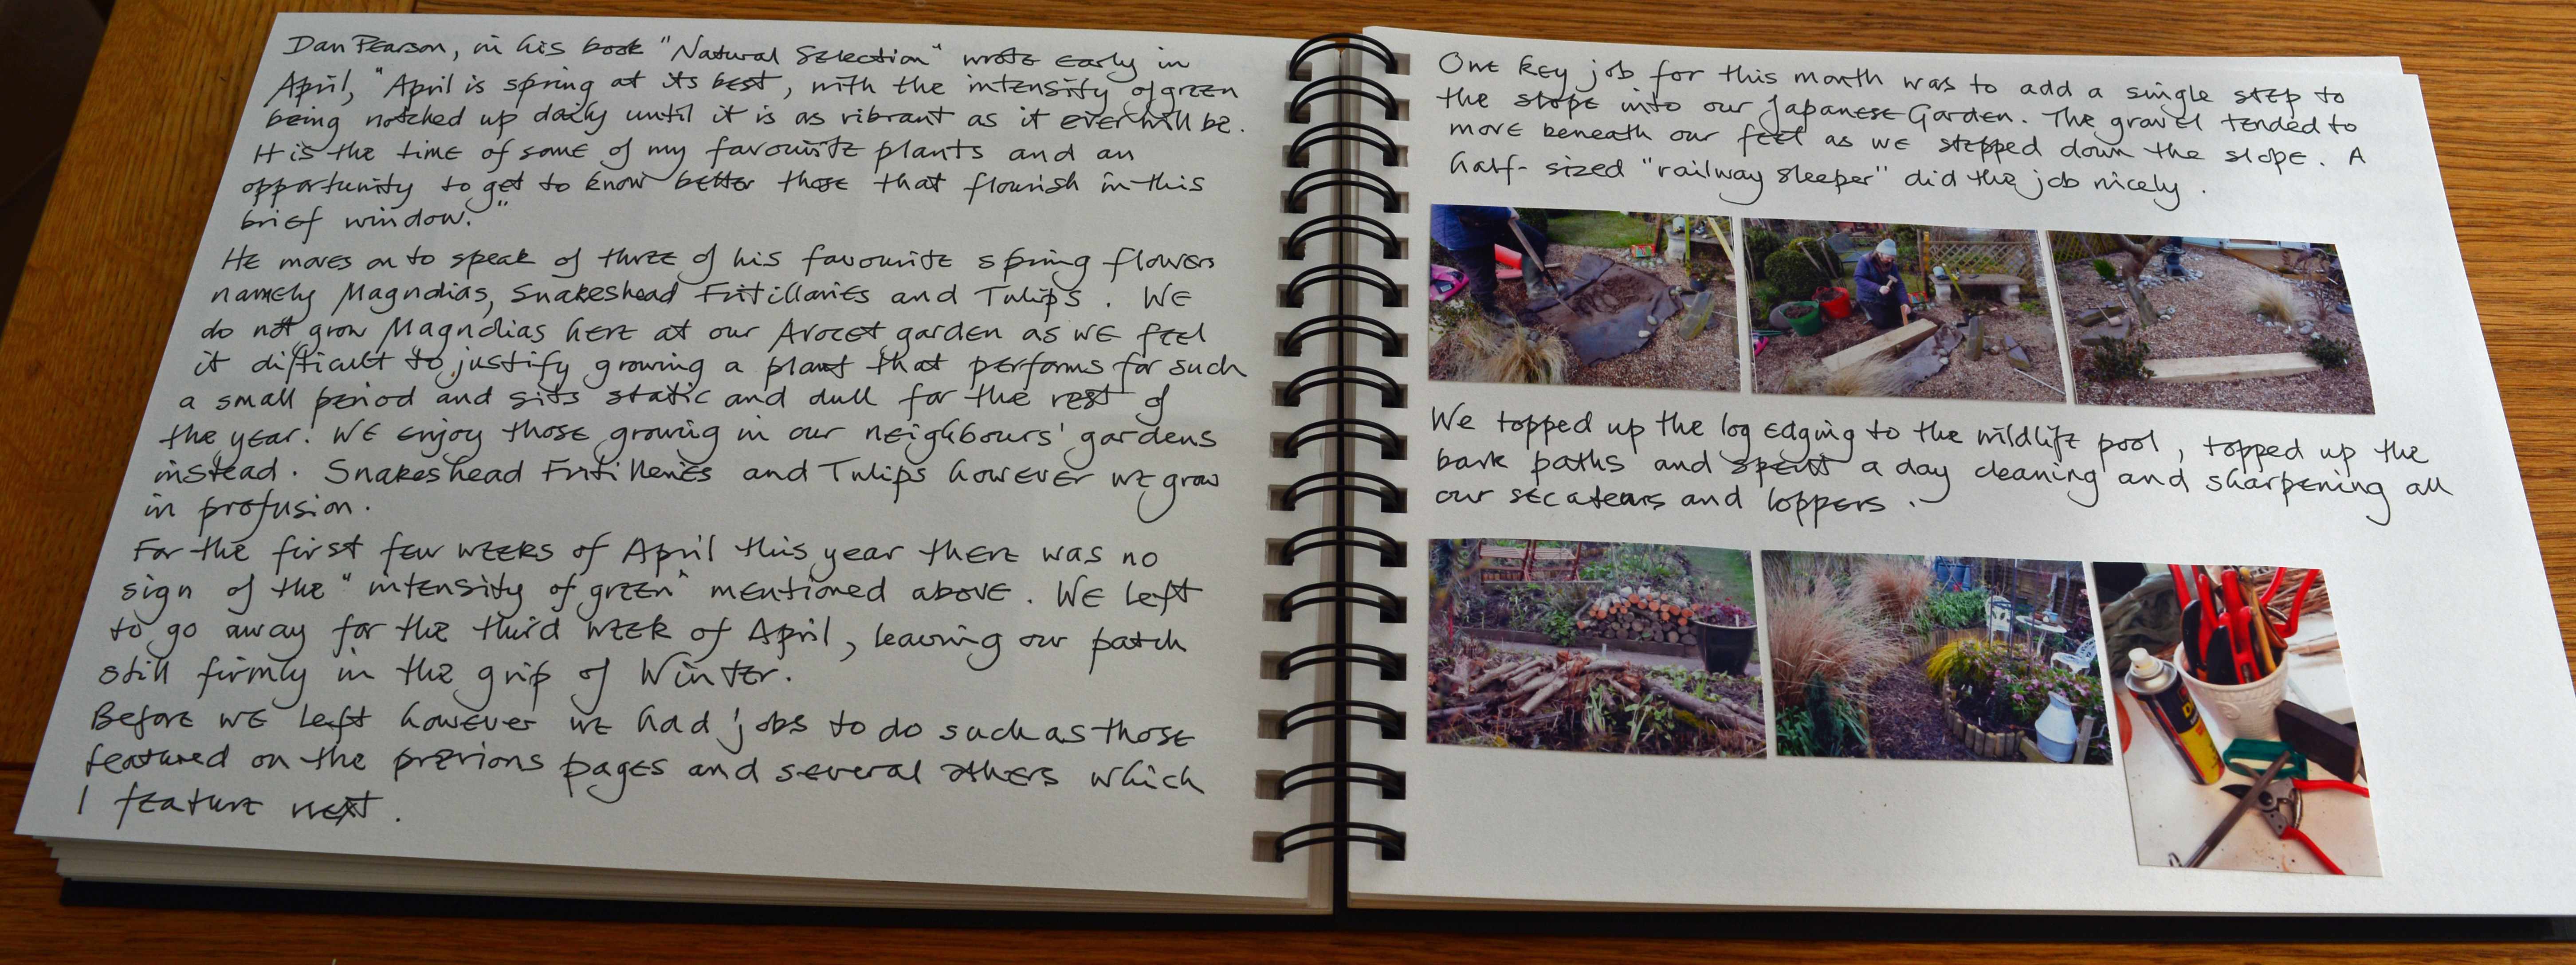 Dan Pearson, in his book "Natural Selection" wrote early in
April, "April is spring at its best, with the intensity of green
being notched up daily until it is as vibrant as it ever will be.
It is the time of some of my favourite plants and an
opportunity to get to know better those that flourish in this
brief window."
He moves on to speak of three of his favourite spring flowers
namely Magnolias, Snakeshead Fritillaries and Tulips. We
do not grow Magnolias here at our Avocet garden as we feel
it difficult to justify growing a plant that performs for such
a small period and sits static and dull for the rest of
the year. We enjoy those growing in our neighbours' gardens
instead. Snakeshead Fritilleries and Tulips however we grow
in profusion.
For the first few weeks of April this year there was no
sign of the "intensity of green" mentioned above. We left
to go away for the third week of April, leaving our patch
still firmly in the grip of Winter.
Before we left however we had jobs to do such as those
featured on the previous pages and several others which
I feature next.
One key job for this month was to add a single step to
the slope into our Japanese Garden. The gravel tended to
move beneath our feet as we stepped down the slope. A
half-sized "railway sleeper" did the job nicely.
We topped up the log edging to the wildlife pool, topped up the
bark paths and spent a day cleaning and sharpening all
our secateurs and loppers.